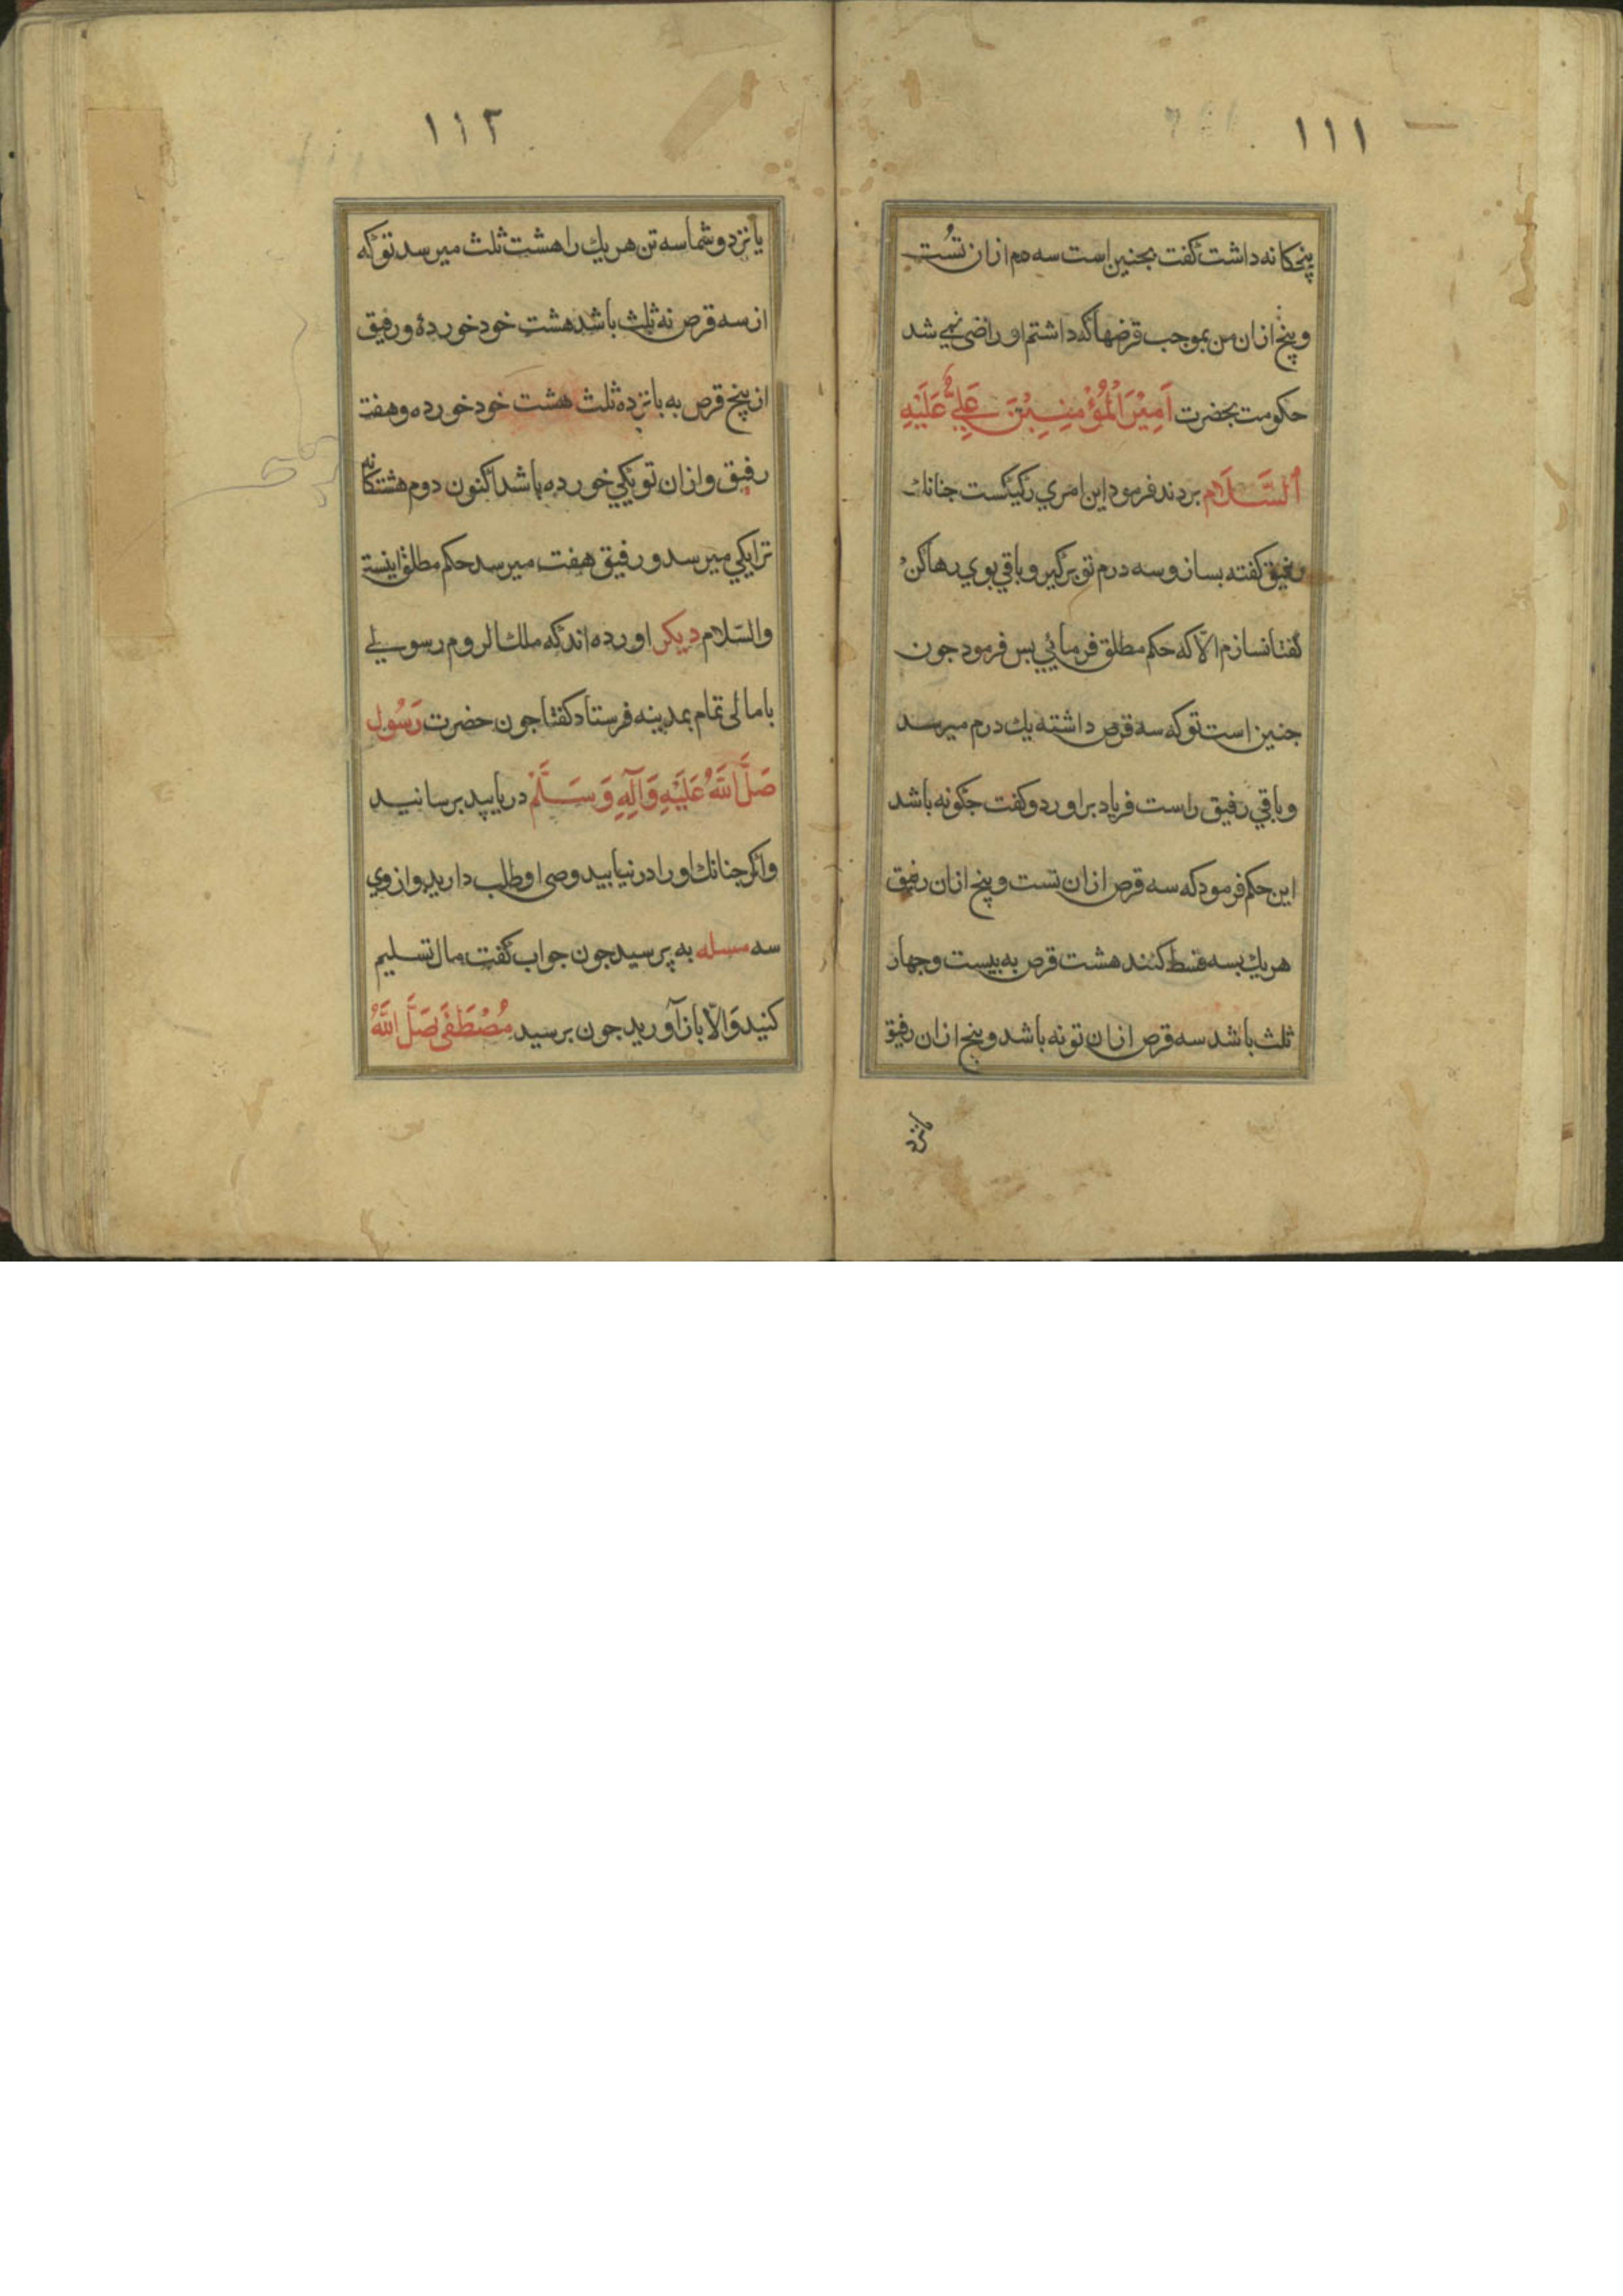 ١١١
پنجکانه داشت کفت بجنین است سه درم ازان تست
و پنج ازان من بموجب قرصها که داشتم او راضی نمی شد
حکومت بحضرت اَمِیْرَ الْمُؤْمِنِیْنَ عَلِیٌّ عَلَیْهِ
اَلسَّلَام بردند فرمود این امری رکیکست جنانك
رفیق کفته بساز و سه درم تو برکیر و باقی بوی رها کن
کفتا نسازم الّا که حکم مطلق فرمائی بس فرمود جون
جنین است تو که سه قرص داشته یك درم میرسد
و باقی رفیق راست فریاد براورد و کفت جکونه باشد
این حکم فرمود که سه قرص ازان تست و پنج ازان رفیق
هریك بسه قسط کنند هشت قرص به بیست و جهار
ثلث باشد سه قرص ازان تو نه باشد و پنج ازان رفیق
یانزد
١١٢
یانزد و شما سه تن هریك را هشت ثلث میرسد تو که
از سه قرص نه ثلث باشد هشت خود خوردهٔ و رفیق
از پنج قرص به بانزده ثلث هشت خود خورده و هفت
رفیق و ازان تو یکی خورده باشد اکنون دوم هشتکانه
ترا یکی میرسد و رفیق هفت میرسد حکم مطلق اینست
والسّلام دیکر اورده اند که ملك الروم رسولے
با مالی تمام بمدینه فرستاد کفتا جون حضرت رَسُول
صَلَّ اللّٰهُ عَلَیْهِ وَآلِهِ وَسَلَّمْ دریابید برسانید
واکر جنانك او را در نیابید وصی او طلب دارید و از وی
سه مسله به پرسید جون جواب کفت مال تسلیم
کنید وَالّا باز آورید جون برسید مُصْطَفَی صَلَّ اللّٰهُ